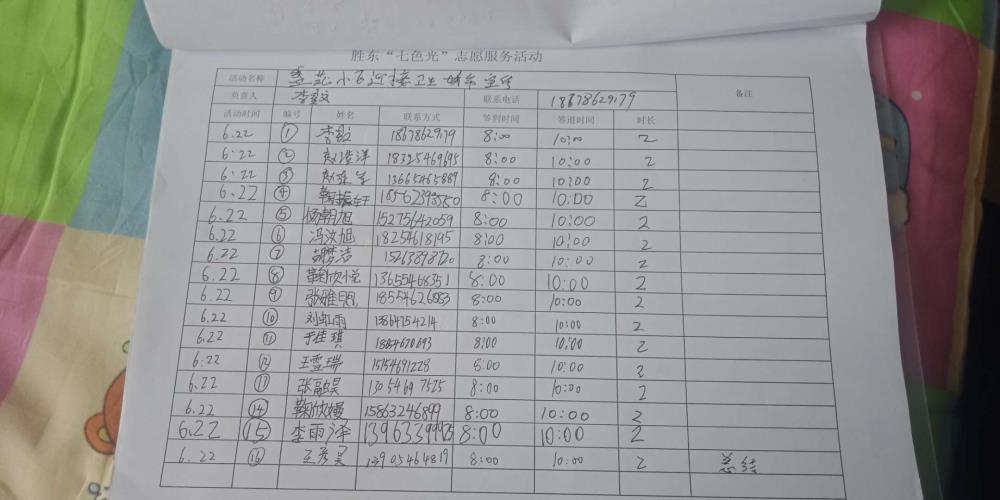 胜东“七色光”志愿服务活动
活动名称 小区迎接卫生城市 备注
负责人 李毅 联系电话 18678629179
活动时间 编号 姓名 联系方式 签到时间 签退时间 时长
6.22 ① 李毅 18678629179 8:00 10:00 2
6.22 ② 赵滢洋 18325469695 8:00 10:00 2
6.22 ③ 13665465889 8:00 10:00 2
6.22 ④ 18562393550 8:00 10:00 2
6.22 ⑤ 杨朝旭 15275642059 8:00 10:00 2
6.22 ⑥ 冯汝旭 18254618195 8:00 10:00 2
6.22 ⑦ 胡梦洁 8:00 10:00 2
6.22 ⑧ 鞠欣悦 13655466351 8:00 10:00 2
6.22 ⑨ 张雅 18554626883 8:00 10:00 2
6.22 ⑩ 刘虹雨 13864754214 8:00 10:00 2
6.22 ⑪ 于佳琪 8:00 10:00 2
6.22 ⑫ 王雪瑞 15154691228 8:00 10:00 2
6.22 张融昊 13054697525 8:00 10:00 2
6.22 ⑭ 鞠欣嫚 15863246899 8:00 10:00 2
6.22 ⑮ 李雨泽 8:00 10:00 2
6.22 ⑯ 王彦昊 13905464819 8:00 10:00 2 总结